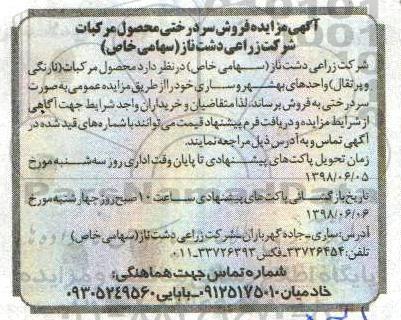 آگهی مزایده فروش سردرختی محصول مرکبات
شرکت زراعی دشت ناز (سهامی خاص)
شرکت زراعی دشت ناز (سهامی خاص) در نظر دارد محصول مرکبات (نارنگی
و پرتقال) واحدهای بهشهر و ساری خود را از طریق مزایده عمومی به صورت
سردرختی به فروش برساند، لذا متقاضیان و خریداران واجد شرایط جهت آگاهی
از شرایط مزایده و دریافت فرم پیشنهاد قیمت می‌توانند با شماره‌های قید شده در
آگهی تماس و به آدرس ذیل مراجعه نمایند.
زمان تحویل پاکت‌های پیشنهادی تا پایان وقت اداری روز سه شنبه مورخ
۱۳۹۸/۰۶/۰۵
تاریخ بازگشائی پاکت‌های پیشنهادی ساعت ۱۰ صبح روز چهارشنبه مورخ
۱۳۹۸/۰۶/۰۶
آدرس: ساری - جاده گهرباران - شرکت زراعی دشت ناز (سهامی خاص)
تلفن: ۳۳۷۲۶۴۵۴ - فکس ۳۳۷۲۶۳۹۳-۰۱۱
شماره تماس جهت هماهنگی:
خادمیان ۰۹۱۲۵۱۷۵۰۱۰ - بابایی ۰۹۳۰۵۲۴۹۵۶۰